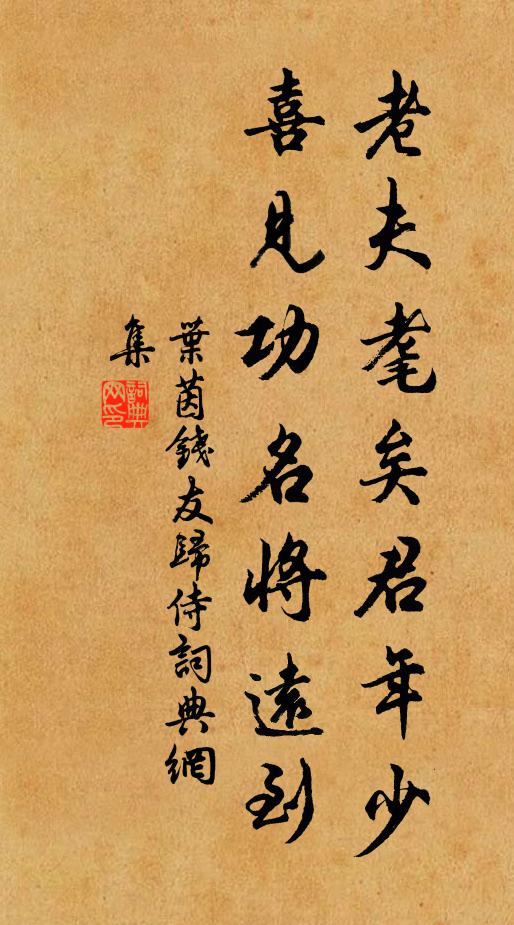 老夫耄矣君年少
喜見功名將遠到
葉茵錢友歸侍詞典網
集
詞典網印